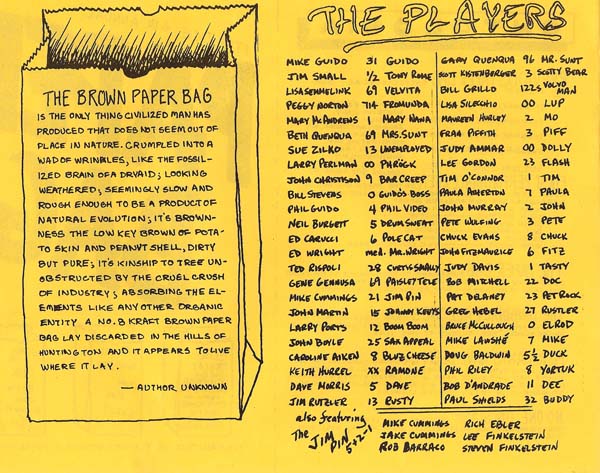 THE BROWN PAPER BAG
IS THE ONLY THING CIVILIZED MAN HAS
PRODUCED THAT DOES NOT SEEM OUT OF
PLACE IN NATURE. CRUMPLED INTO A
WAD OF WRINKLES, LIKE THE FOSSIL-
IZED BRAIN OF A DRYAID; LOOKING
WEATHERED; SEEMINGLY SLOW AND
ROUGH ENOUGH TO BE A PRODUCT OF
NATURAL EVOLUTION; IT'S BROWN-
NESS THE LOW KEY BROWN OF POTA-
TO SKIN AND PEANUT SHELL, DIRTY
BUT PURE; IT'S KINSHIP TO TREE UN-
OBSTRUCTED BY THE CRUEL CRUSH
OF INDUSTRY; ABSORBING THE EL-
EMENTS LIKE ANY OTHER ORGANIC
ENTITY A NO. 8 KRAFT BROWN PAPER
BAG LAY DISCARDED IN THE HILLS OF
HUNTINGTON AND IT APPEARS TO LIVE
WHERE IT LAY.
— AUTHOR UNKNOWN
THE PLAYERS
MIKE GUIDO 31 GUIDO
JIM SMALL 1/2 TONY ROME
LISA SEMMELINK 69 VELVITA
PEGGY NORTON 714 FROMUNDA
MARY McANDREWS 1 MARY NANA
BETH QUENQUA 69 MRS. SUNT
SUE ZILKO 13 UNEMPLOYED
LARRY PERLMAN 00 PHRÖGK
JOHN CHRISTISON 9 BAR CREEP
BILL STEVENS 0 GUIDO'S BOSS
PHIL GUIDO 4 PHIL VIDEO
NEIL BURGETT 5 DRUMSEAT
ED CARUCCI 6 POLE CAT
ED WRIGHT med. MR. WRIGHT
TED RISPOLI 28 CURTIS MALLY
GENE GENNUSA 69 PAISLEY TELE
MIKE CUMMINGS 21 JIM PIN
JOHN MARTIN 15 JOHNNY KEEYS
LARRY PORTS 12 BOOM BOOM
JOHN BOYLE 25 SAX APPEAL
CAROLINE AIKEN 8 BLUZ CHEESE
KEITH HURREL XX RAMONE
DAVE MORRIS 5 DAVE
JIM RUTZLER 13 RUSTY
GARY QUENQUA 96 MR. SUNT
SCOTT KISTENBERGER 3 SCOTTY BEAR
BILL GRILLO 122S VOLVO MAN
LISA SILECCHIO 00 LUP
MAUREEN HURLEY 2 MO
FRAN PIFFITH 3 PIFF
JUDY AMMAR 00 DOLLY
LEE GORDON 23 FLASH
TIM O'CONNOR 1 TIM
PAULA ATHERTON 7 PAULA
JOHN MURRAY 2 JOHN
PETE WULFING 3 PETE
CHUCK EVANS 8 CHUCK
JOHN FITZMAURICE 6 FITZ
JUDY DAVIS 1 TASTY
BOB MITCHELL 22 DOC
PAT DELANEY 23 PET ROCK
GREG HEBEL 27 RUSTLER
BRUCE McCULLOUGH 0 ELROD
MIKE LAWSHÉ 7 MIKE
DOUG BALDWIN 5 1/2 DUCK
PHIL RILEY 8 YORTUK
BOB D'ANDRADE 11 DEE
PAUL SHIELDS 32 BUDDY
also featuring
The JIM PIN 5+2-1
MIKE CUMMINGS RICH EBLER
JAKE CUMMINGS LEE FINKELSTEIN
ROB BARRACO STEVEN FINKELSTEIN